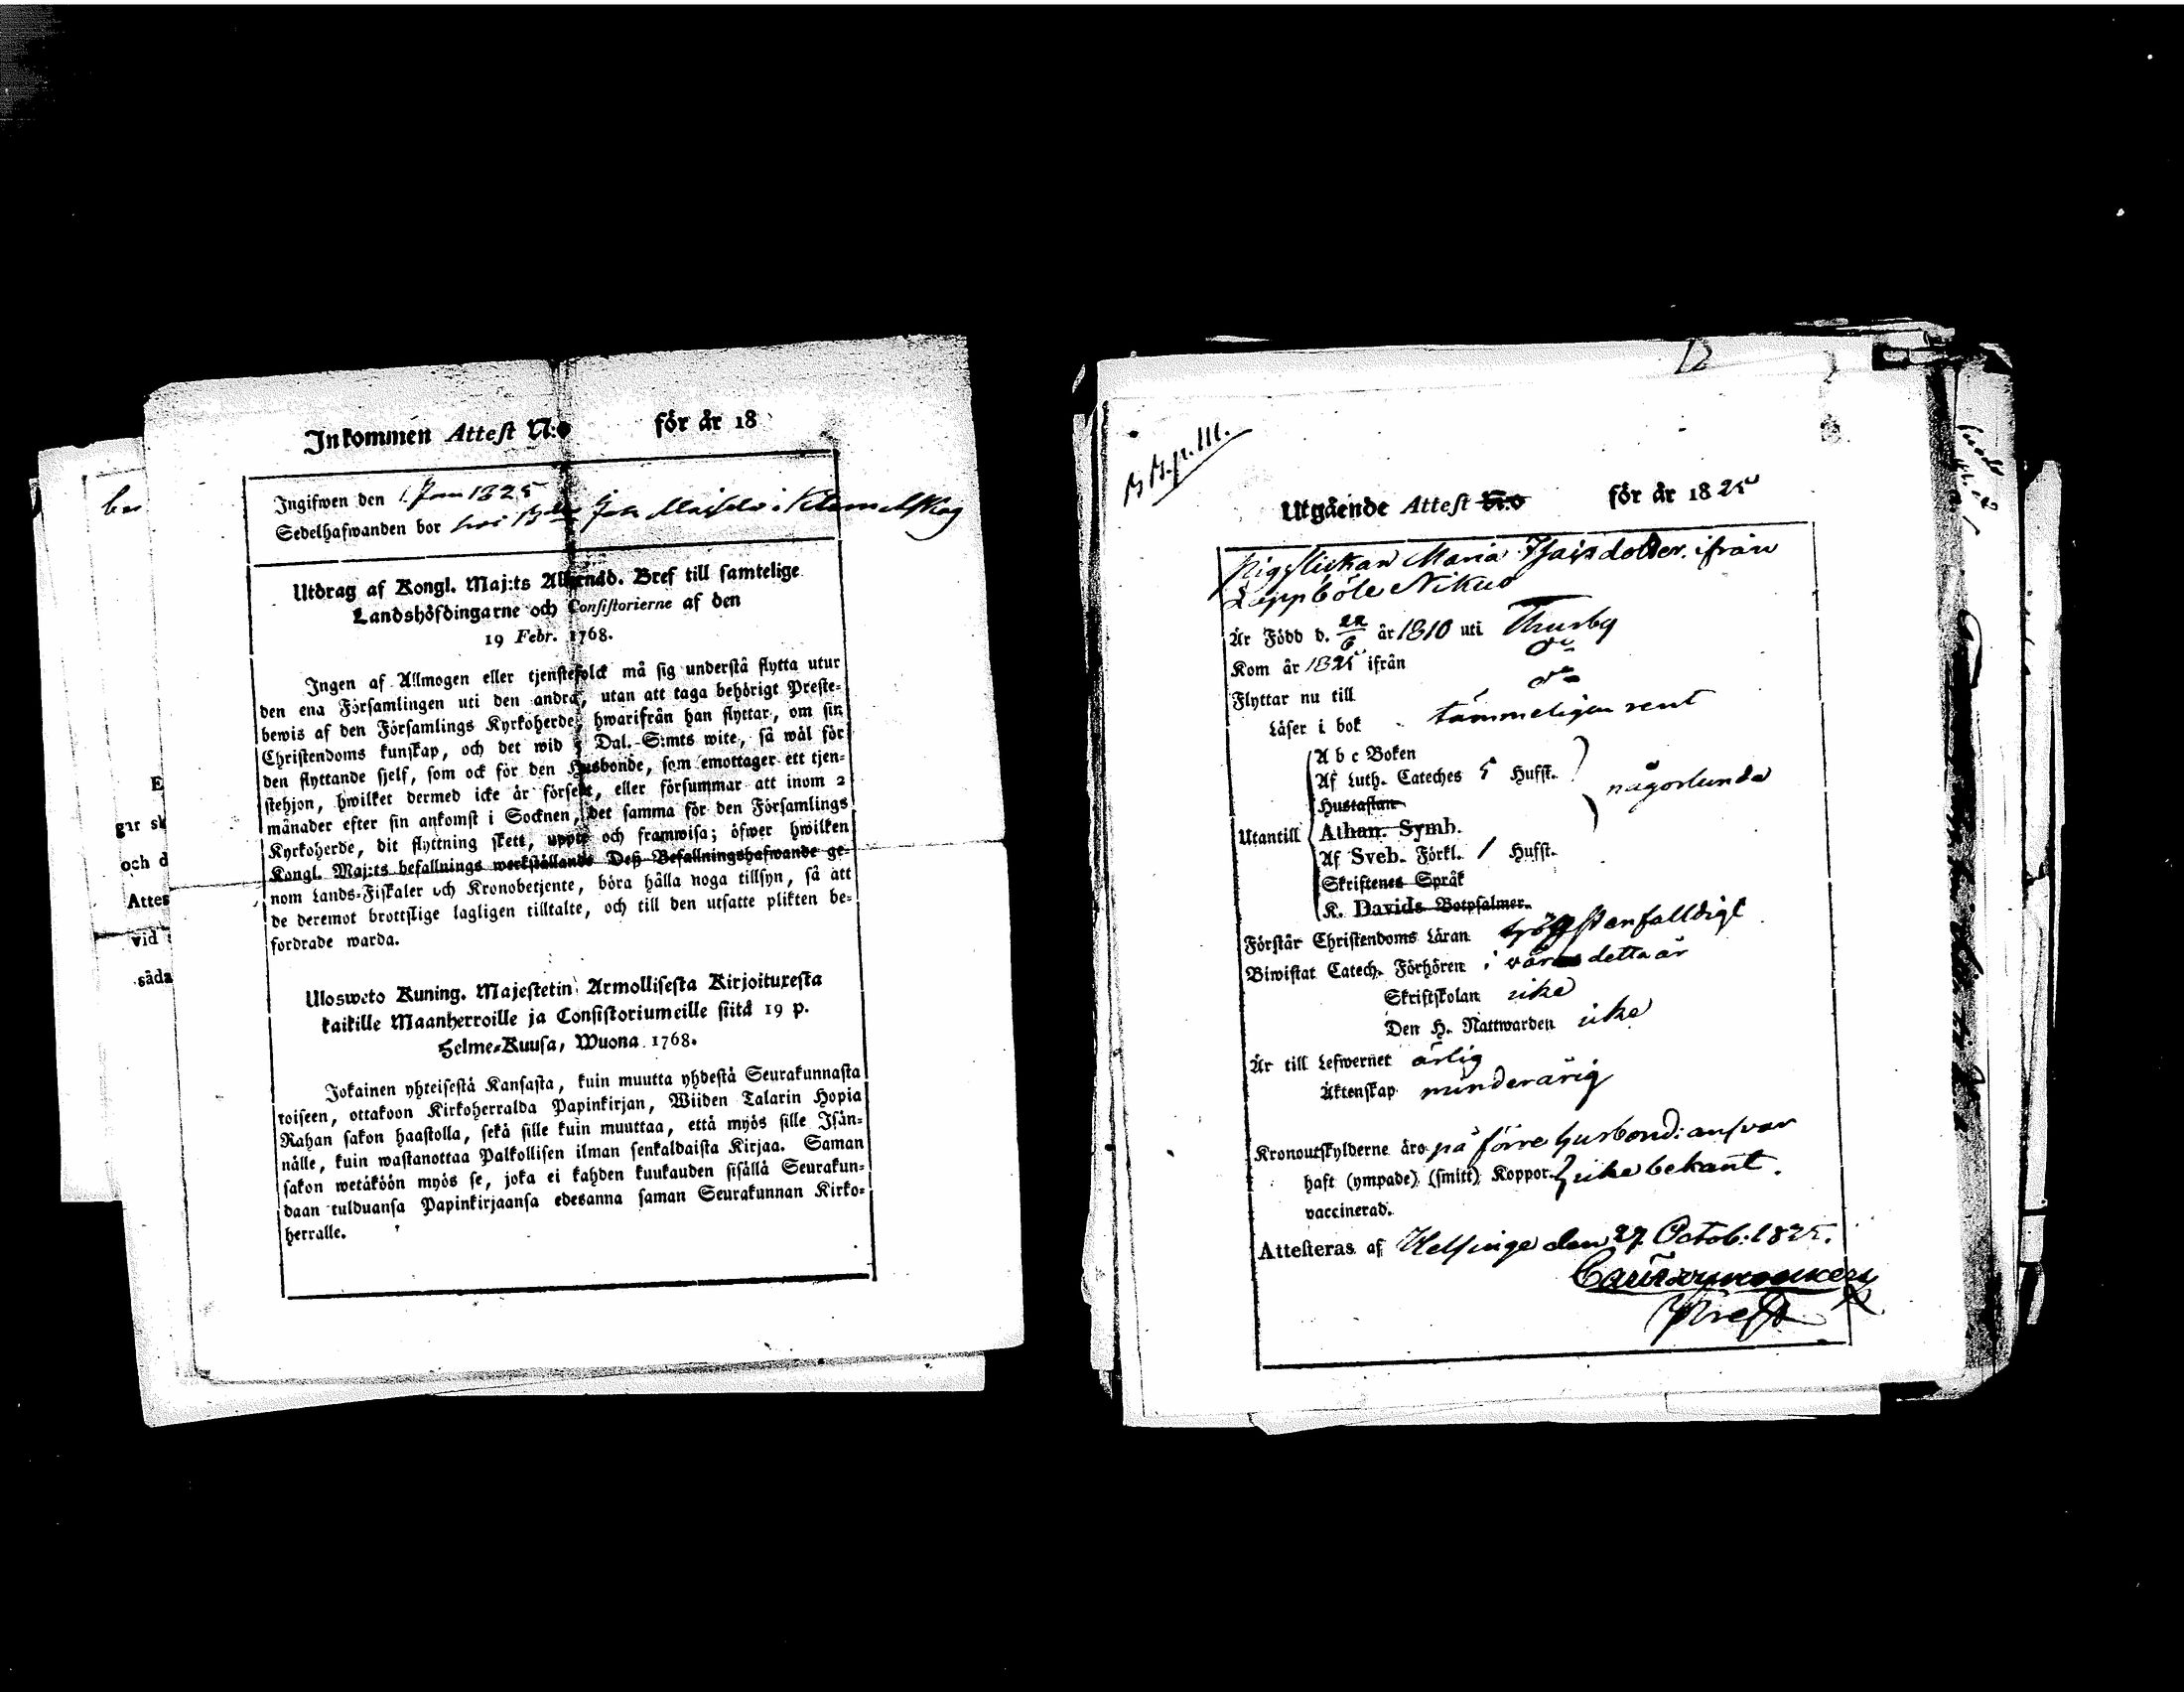 Inkommen Attest N:o för år 18
Ingifwen den 1 Jan 1825
Sedelhafwanden bor hos Joh
Utdrag af Kongl. Maj:ts Allernåd. Bref till samtelige
Landshöfdingarne och Consistorierne af den
19 Febr. 1768.
Ingen af Allmogen eller tjenstefolck må sig understå flytta utur
den ena Församlingen uti den andra, utan att taga behörigt Preste-
bewis af den Församlings Kyrkoherde, hwarifrån han flyttar, om sin
Christendoms kunskap, och det wid 5 Dal. S:mts wite, så wål för
den flyttande sjelf, som ock för den Husbonde, som emottager ett tjen-
stehjon, hwilket dermed icke år försedt, eller försummar att inom 2
månader efter sin ankomst i Socknen, det samma för den Församlings
Kyrkoherde, dit flyttning skett, uppte och framwisa; öfwer hwilken
Kongl. Maj:ts befallnings werkställande Deß Befallningshafwande ge-
nom Lands-Fiskaler och Kronobetjente, böra hålla noga tillsyn, så att
de deremot brottslige lagligen tilltalte, och till den utsatte plikten be-
fordrade warda.
Ulosweto Kuning. Majestetin Armollisesta Kirjoituxesta
kaikille Maanherroille ja Consistoriumeille siitå 19 p.
Helme-Kuusa, Wuona 1768.
Jokainen yhteisestå Kansasta, kuin muutta yhdestå Seurakunnasta
toiseen, ottakoon Kirkoherralda Papinkirjan, Wiiden Talarin Hopia
Rahan sakon haastolla, sekå sille kuin muuttaa, ettå myös sille Isån-
nålle, kuin wastanottaa Palkollisen ilman senkaldaista Kirjaa. Saman
sakon wetåköön myös se, joka ei kahden kuukauden sisållå Seurakun-
daan tulduansa Papinkirjaansa edesanna saman Seurakunnan Kirko-
herralle.
12
Utgående Attest N:o för år 1825
Pigflickan Maria Isaksdotter ifrån
Lappböle Nikus
År Född d. 22/6 år 1810 uti Thusby
Kom år 1825 ifrån do
Flyttar nu till do
Låser i bok tämmeligen rent
A b c Boken
Af Luth. Cateches 5 Hufst. någorlunda
Hustaflan
Utantill Athan. Symb.
Af Sveb. Förkl. 1 Hufst.
Skriftenes Språk
K. Davids Botpsalmer.
Förstår Christendoms Låran högst enfalldigt
Biwistat Catech. Förhören i detta år
Skriftskolan icke
Den H. Nattwarden icke
År till Lefwernet ärlig
Åktenskap minderårig
Kronoutskylderne åro på förre husbond: answar
haft (ympade) (smitt) Koppor icke bekant.
vaccinerad.
Attesteras af Helsinge den 27 Octob: 1825.